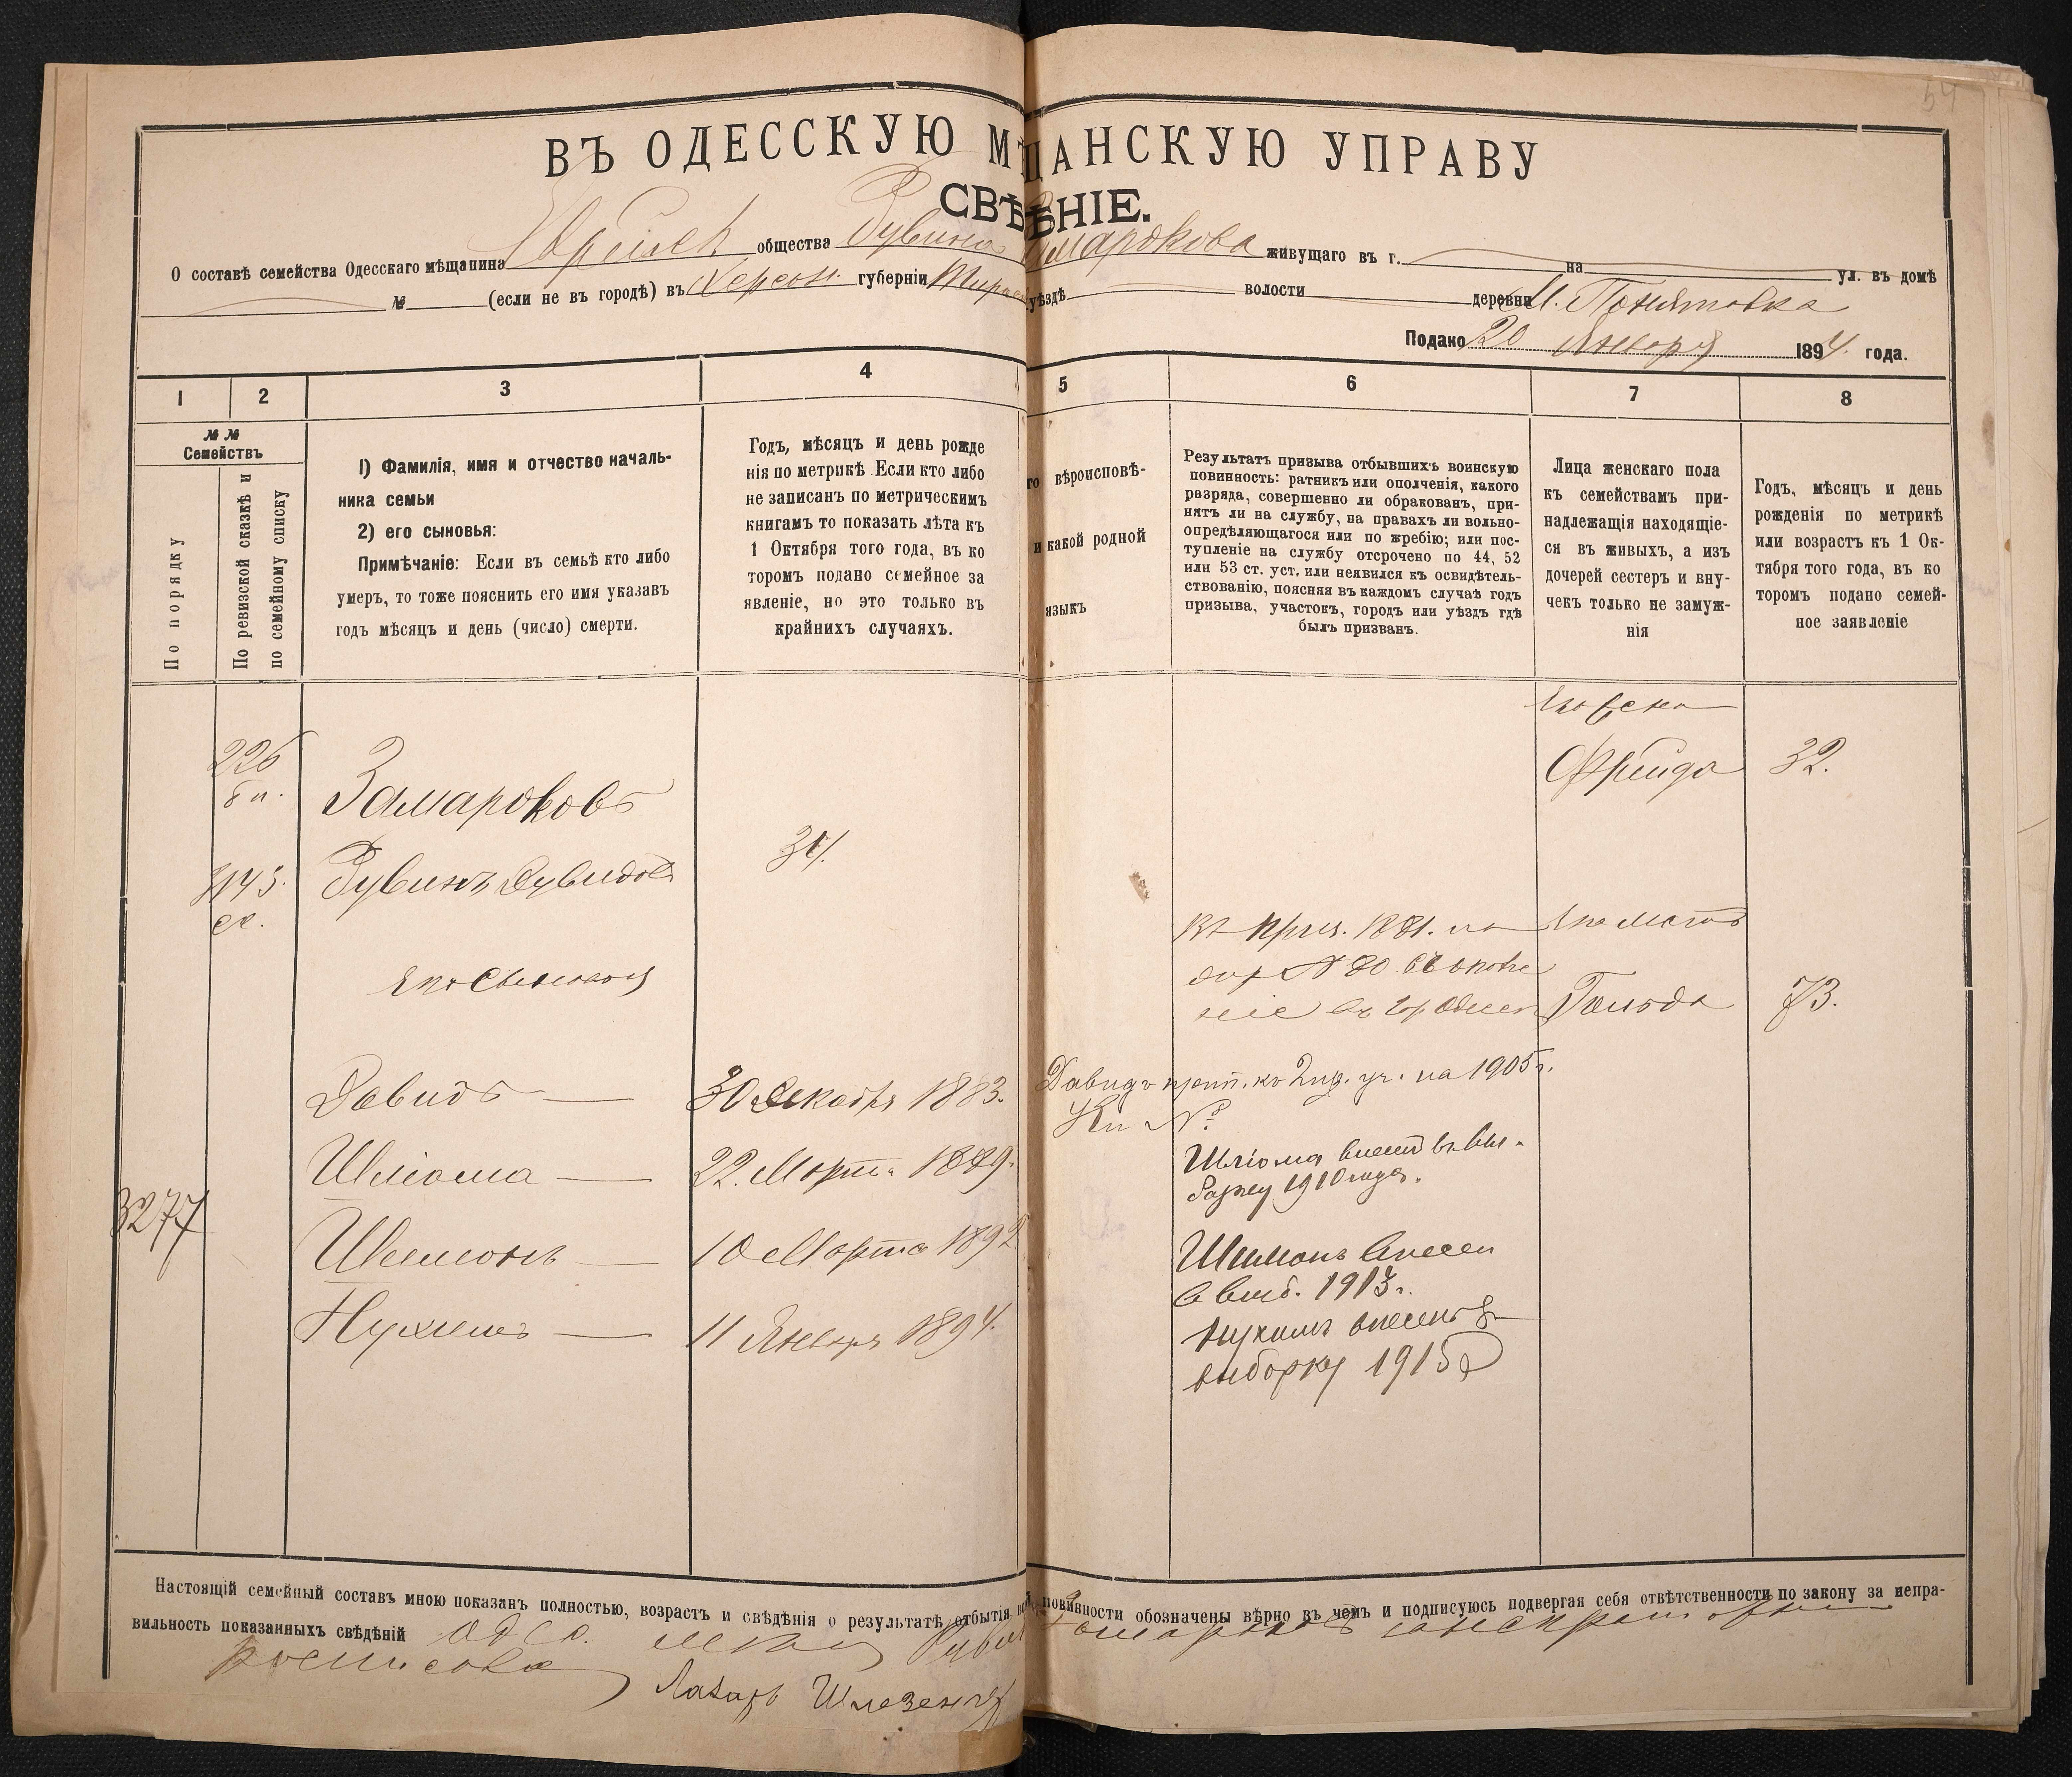 54
ВЪ ОДЕССКУЮ М ЩАНСКУЮ УПРАВУ
СВѢ ѢНІЕ.
О составѣ семейства Одесскаго мѣщанина общества Рувина Замардкова живущаго въ г. на ул. въ домѣ
№ (если не въ городѣ) въ Херсон. губерніи Тирас уѣздѣ волости деревни М. Понятовка
Подано 20 Января 1894 года.
1 2 3 4 5 6 7 8
№ №
Семействъ
По порядку
По ревизской сказкѣ и
по семейному списку
1) Фамилія, имя и отчество началь-
ника семьи
2) его сыновья:
Примѣчаніе: Если въ семьѣ кто либо
умеръ, то тоже пояснить его имя указавъ
годъ мѣсяцъ и день (число) смерти.
Годъ, мѣсяцъ и день рожде
нія по метрикѣ Если кто либо
не записанъ по метрическимъ
книгамъ то показать лѣта къ
1 Октября того года, въ ко
торомъ подано семейное за
явленіе, но это только въ
крайнихъ случаяхъ.
го вѣроисповѣ-
и какой родной
языкъ
Результатъ призыва отбывшихъ воинскую
повинность: ратникъ или ополченія, какого
разряда, совершенно ли обракованъ, при-
нятъ ли на службу, на правахъ ли вольно-
опредѣляющагося или по жребію; или пос-
тупленіе на службу отсрочено по 44, 52
или 53 ст. уст. или неявился къ освидѣтель-
ствованію, поясняя въ каждомъ случаѣ годъ
призыва, участокъ, городъ или уѣздъ гдѣ
былъ призванъ.
Лица женскаго пола
къ семействамъ при-
надлежащія находящіе-
ся въ живыхъ, а изъ
дочерей сестеръ и вну-
чекъ только не замуж-
нія
Годъ, мѣсяцъ и день
рожденія по метрикѣ
или возрастъ къ 1 Ок-
тября того года, въ ко
торомъ подано семей-
ное заявленіе
Его жена
226
Замардковъ
Фрейда 32.
Рувинъ Дувидовъ 34.
3143.
Его сыновья
Въ приз. 1881. Его мать
№ 80.
Гольда 73.
Давидъ — 30 Декабря 1883.
Давидъ прип. къ 2 пр. уч. на 1905 г.
№
Шліома — 22 Марта 1889.
Шліома внесен въ вы-
борку 1910 года.
3277
Шимонъ — 10 Марта 1892
Шимонъ внесен
в выб. 1913 г.
Нухимъ — 11 Января 1894.
Нухимъ внесенъ в
выборку 1915
Настоящій семейный составъ мною показанъ полностью, возрастъ и свѣдѣнія о результатѣ отбытія повинности обозначены вѣрно въ чемъ и подписуюсь подвергая себя отвѣтственности по закону за непра-
вильность показанныхъ свѣдѣній
Лазарь